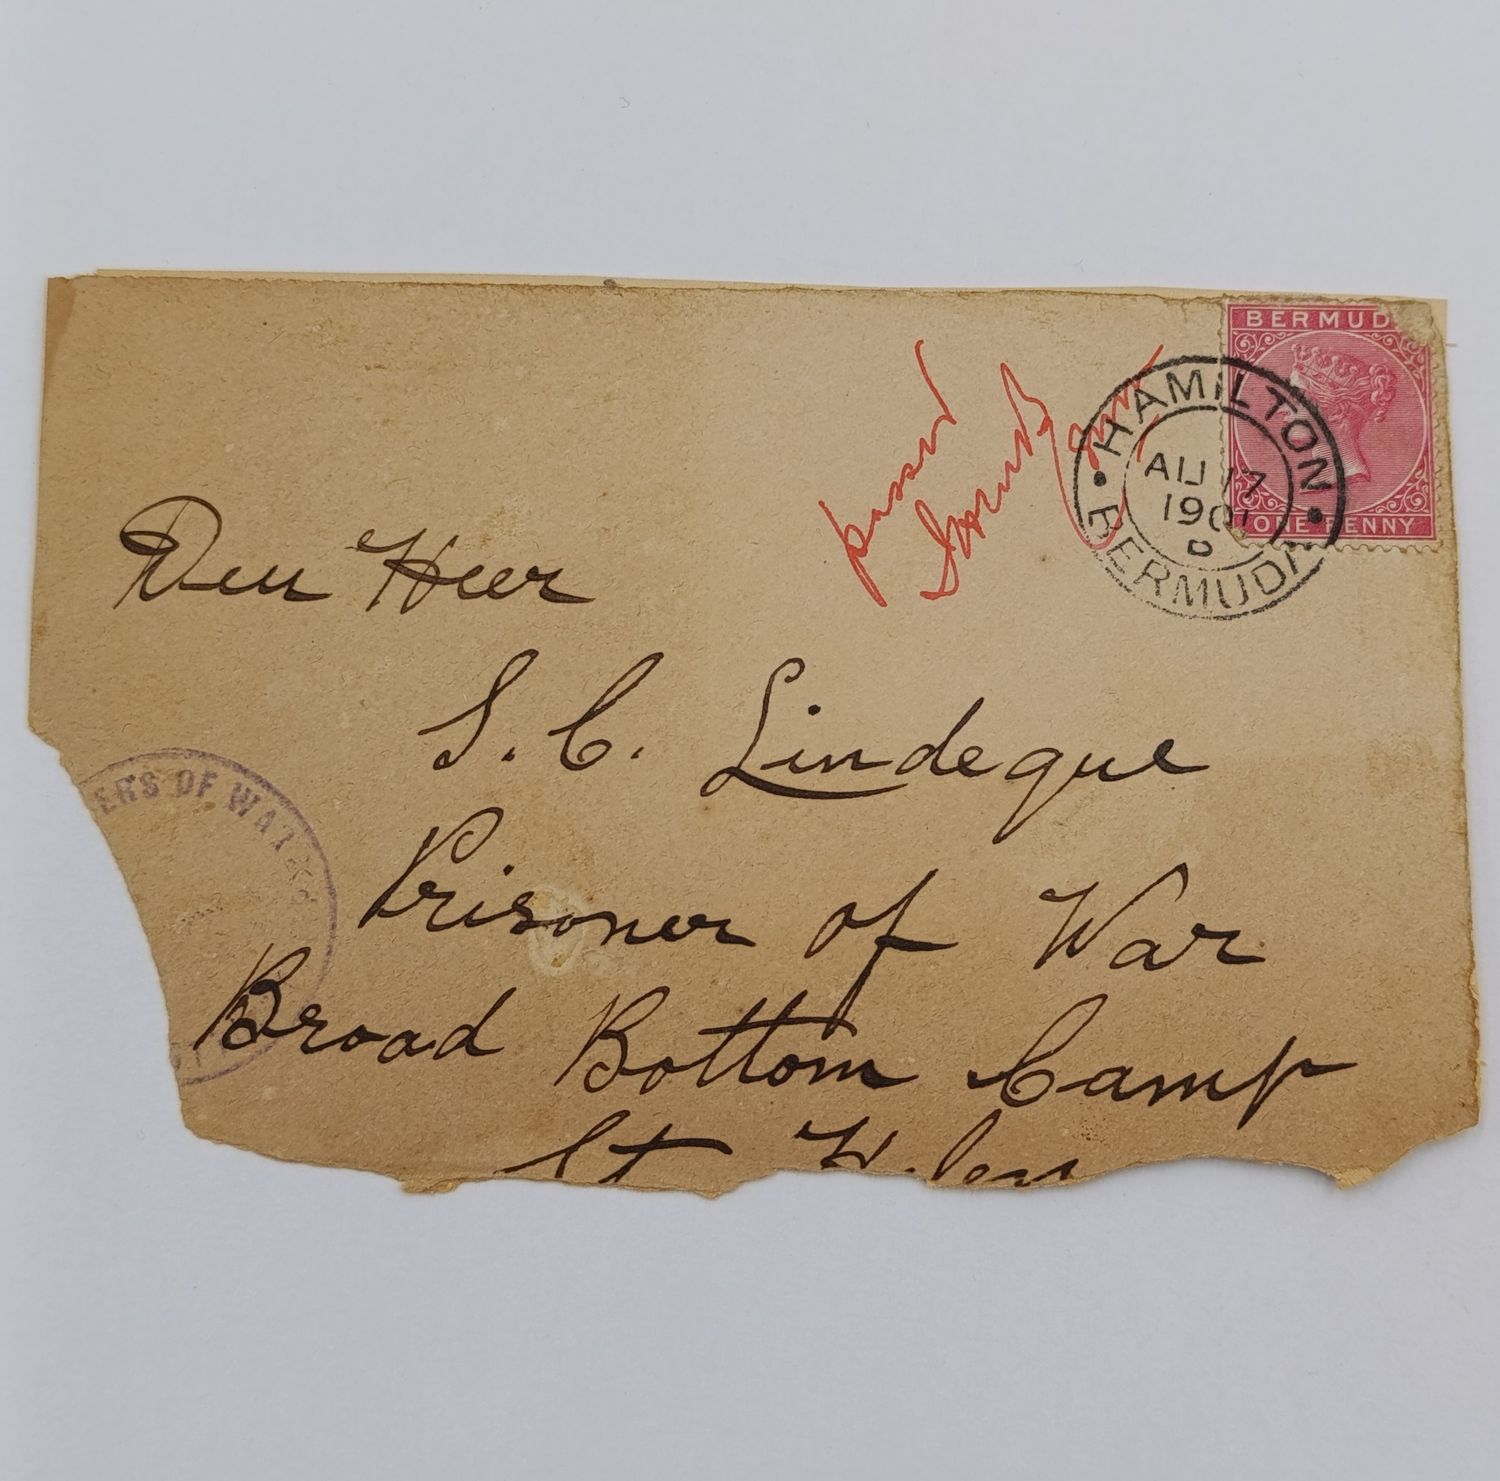 BERMUD
ONE PENNY
HAMILTON
AU 17
1901
BERMUDA
passed
Den Heer
S. C. Lindeque
ERS OF WAR
Prisoner of War
Broad Bottom Camp
St